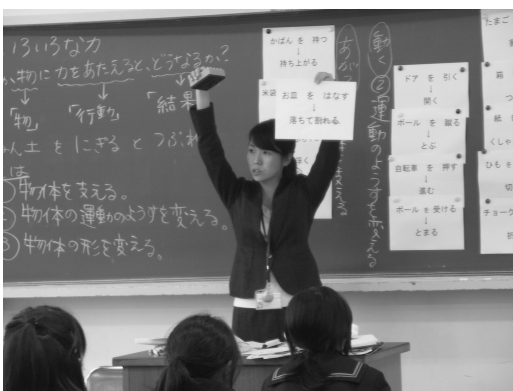 いろいろな力
物に力をあたえると、どうなるか?
↓ ↓ ↓
「物」 「行動」 「結果
ん土 を にぎる と つぶれ
物体を支える。
物体の運動のようすを変える。
③物体の形を変える。
かばん を 持つ
↓
持ち上がる
米袋
お皿 を はなす
↓
落ちて割れる
動く
②運動のようすを変える
ドア を 引く
↓
開く
ボール を 蹴る
↓
とぶ
自転車 を 押す
↓
進む
ボール を 受ける
↓
とまる
たまご
箱
つ
紙
くしゃ
ひも を
切
チョーク
折